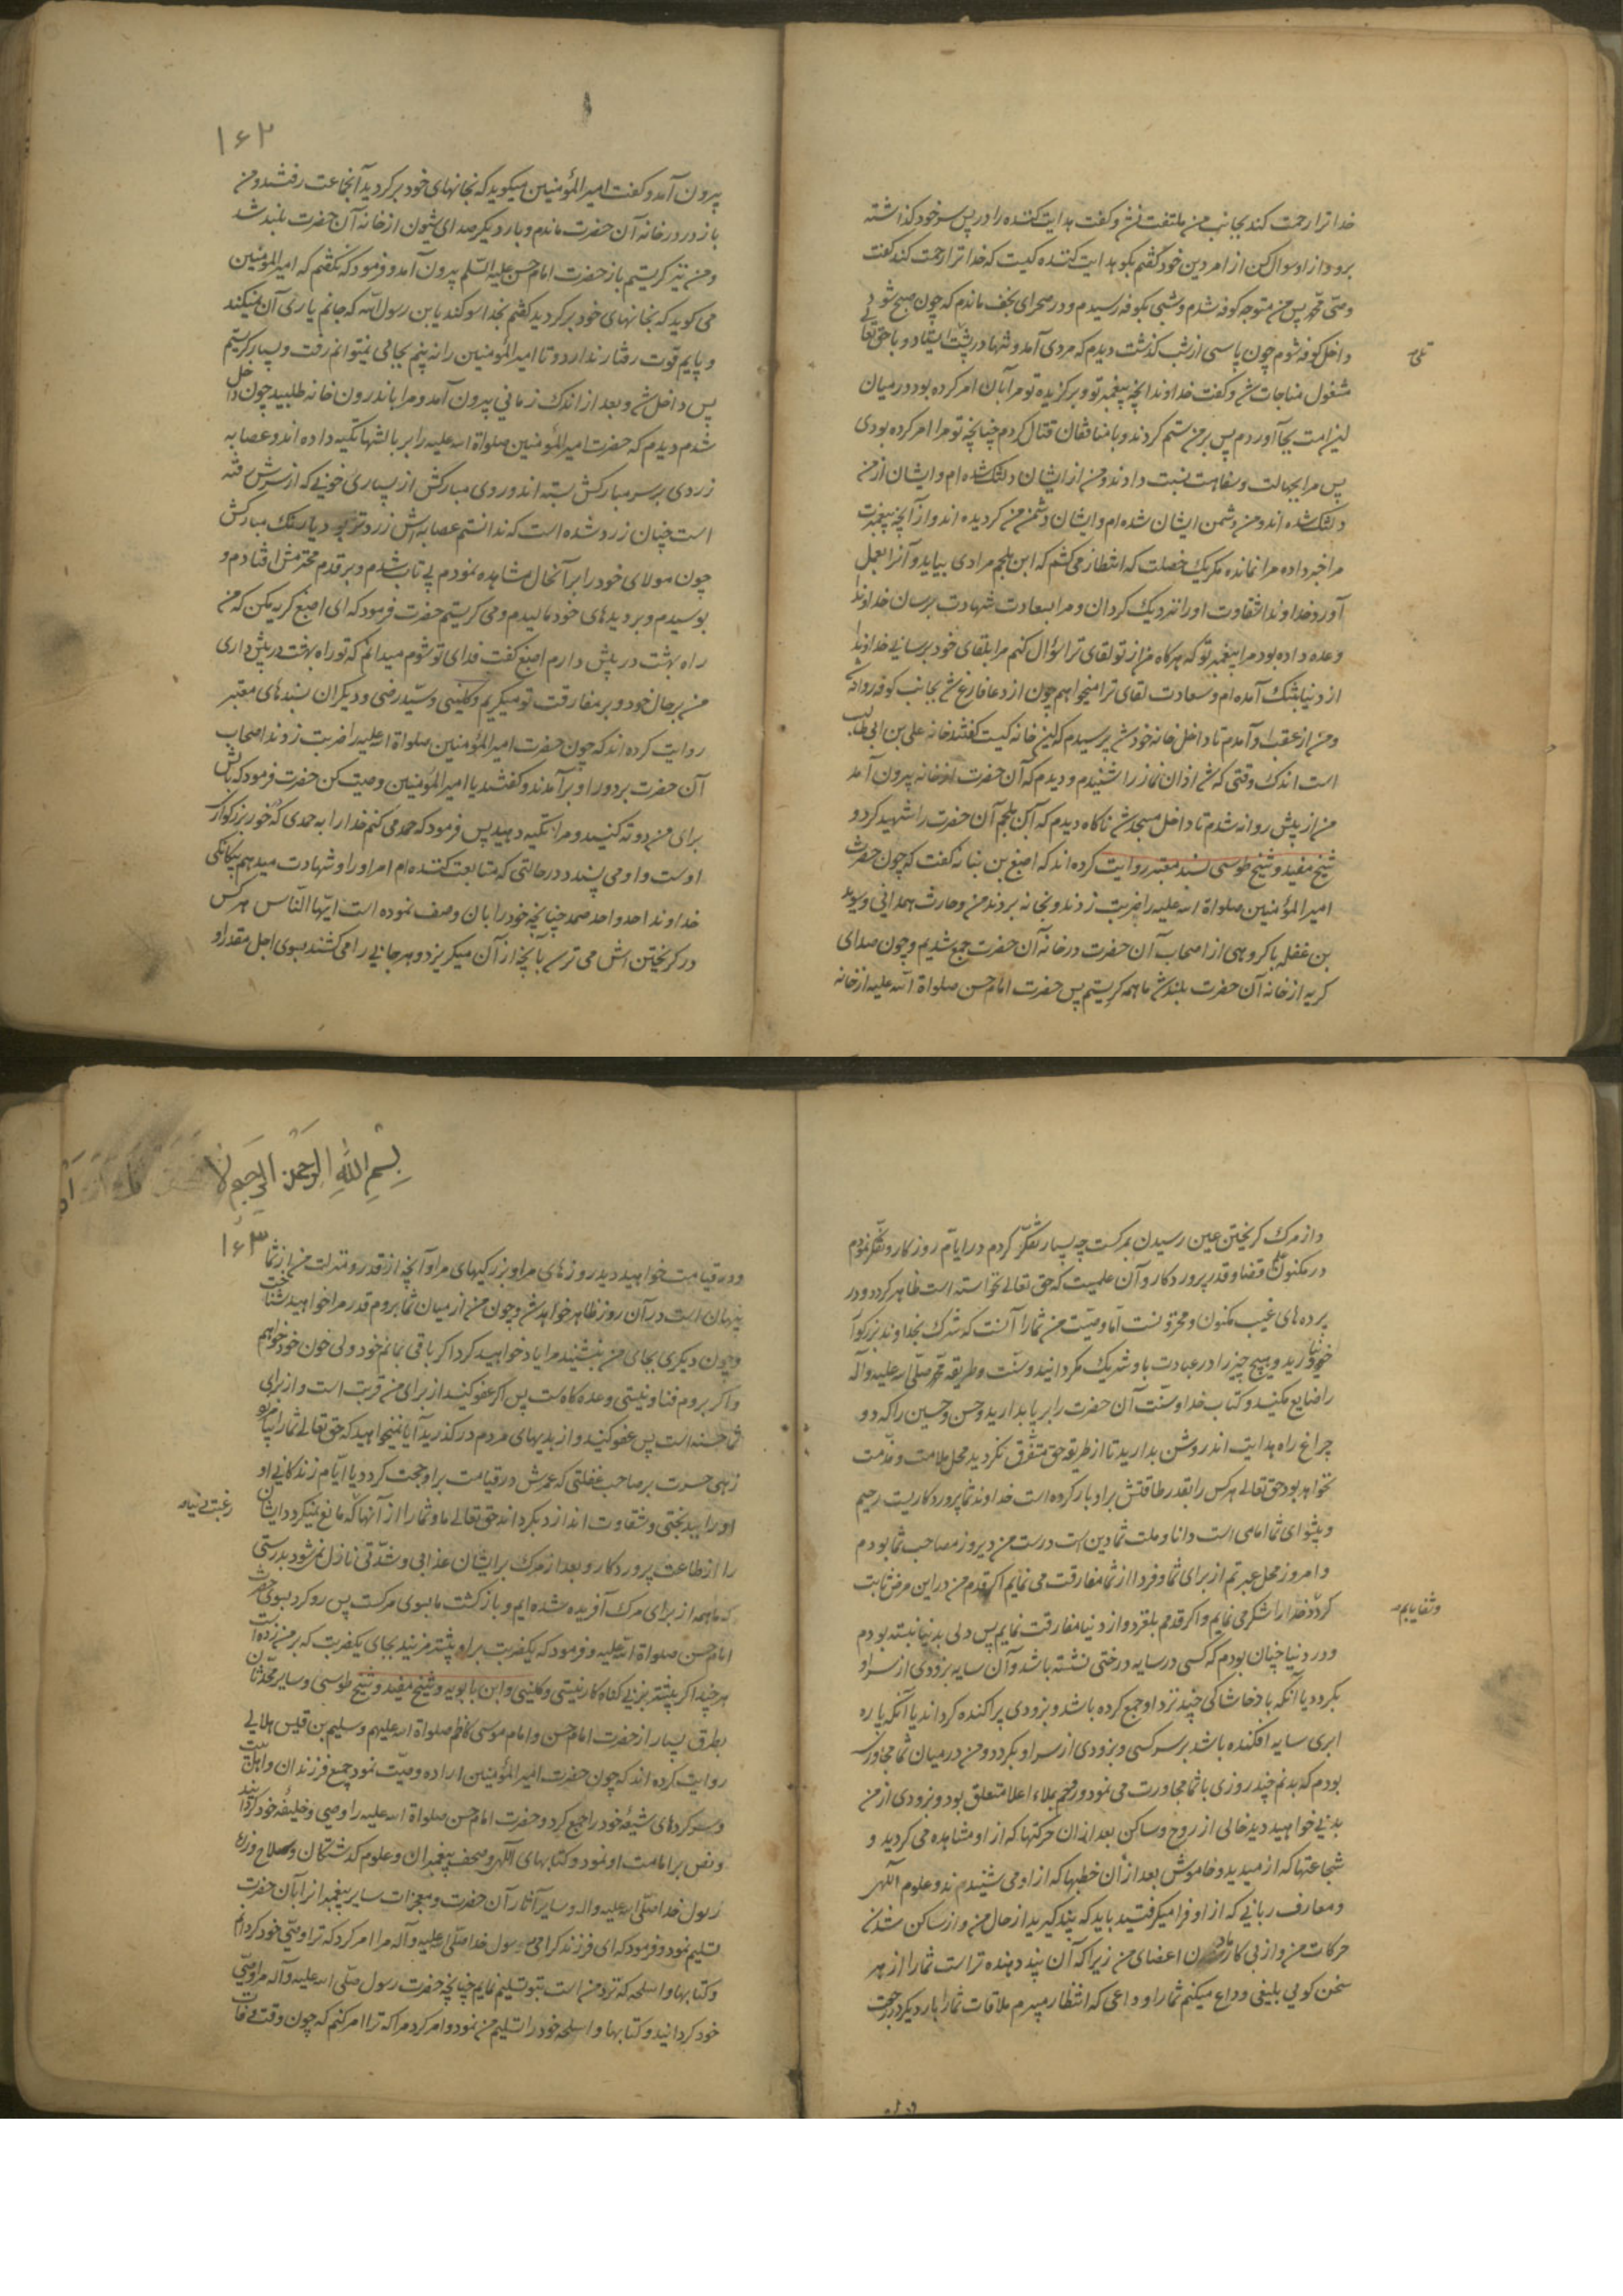 خدا ترا رحمت کند بجانب من ملتفت نشد و گفت هدایت کننده را در پس سر خود گذاشته
برو و از او سوال کن از امر دین خود گفتم بگو هدایت کننده کیست که خدا ترا رحمت کند گفت
وصی محمد پس من متوجه کوفه شدم و شبی بکوفه رسیدم و در صحرای نجف ماندم که چون صبح شود
داخل کوفه شوم چون پاسی از شب گذشت دیدم که مردی آمد و تنها در پشت ایستاد و با حق تعالی
مشغول مناجات شد و گفت خداوندا آنچه پیغمبر تو و برگزیده تو مرا بآن امر کرده بود در میان
این امت بجا آوردم پس بر من ستم کردند و با منافقان قتال کردم چنانچه تو مرا امر کرده بودی
پس مرا بجهالت و سفاهت نسبت دادند و من از ایشان دلتنگ شده ام و ایشان از من
دلتنگ شده اند و من دشمن ایشان شده ام و ایشان دشمن من گردیده اند و از آنچه پیغمبرت
مرا خبر داده مرا نمانده مگر یک خصلت که انتظار می کشم که ابن ملجم مرادی بیاید و آنرا بعمل
آورد خداوندا شقاوت او را نزدیک گردان و مرا بسعادت شهادت برسان خداوندا
وعده داده بود مرا پیغمبر تو که هرگاه من از تو لقای ترا سؤال کنم مرا بلقای خود برسانی خداوندا
از دنیا بتنگ آمده ام و سعادت لقای ترا میخواهم چون از دعا فارغ شد بجانب کوفه روانه شد
و من از عقب او آمدم تا داخل خانه خود شد پرسیدم که این خانه کیست گفتند خانه علی بن ابی طالب
است اندک وقتی که شد اذان نماز را شنیدم و دیدم که آن حضرت از خانه بیرون آمد
من از پیش روانه شدم تا داخل مسجد شد ناگاه دیدم که ابن ملجم آن حضرت را شهید کرد و
شیخ مفید و شیخ طوسی بسند معتبر روایت کرده اند که اصبغ بن نباته گفت که چون حضرت
امیر المؤمنین صلواة الله علیه را ضربت زدند و بخانه بردند من و حارث همدانی و سوید
بن غفله با گروهی از اصحاب آن حضرت در خانه آن حضرت جمع شدیم و چون صدای
گریه از خانه آن حضرت بلند شد ما همه گریستیم پس حضرت امام حسن صلواة الله علیه از خانه
۱۶۲
بیرون آمد و گفت امیر المؤمنین میگوید که بخانهای خود برگردید آنجماعت رفتند و من
باز در در خانه آن حضرت ماندم و بار دیگر صدای شیون از خانه آن حضرت بلند شد
و من نیز گریستم باز حضرت امام حسن علیه السلم بیرون آمد و فرمود که نگفتم که امیر المؤمنین
می گوید که بخانهای خود برگردید گفتم بخدا سوگند یابن رسول الله که جانم یاری آن نمیکند
و پایم قوت رفتار ندارد و تا امیر المؤمنین را نه بینم بجائی نمیتوانم رفت و بسیار گریستم
پس داخل شد و بعد از اندک زمانی بیرون آمد و مرا باندرون خانه طلبید چون داخل
شدم دیدم که حضرت امیر المؤمنین صلواة الله علیه را بر بالشها تکیه داده اند و عصابه
زردی بر سر مبارکش بسته اند و روی مبارکش از بسیاری خونی که از سرش رفته
است چنان زرد شده است که ندانستم عصابه اش زردتر بود یا رنگ مبارکش
چون مولای خود را بر آنحال مشاهده نمودم بی تاب شدم و بر قدم محترمش افتادم و
بوسیدم و بر دیدهای خود مالیدم و می گریستم حضرت فرمود که ای اصبغ گریه مکن که من
راه بهشت در پیش دارم اصبغ گفت فدای تو شوم میدانم که تو راه بهشت در پیش داری
من بر حال خود و بر مفارقت تو میگریم و کلینی و سید رضی و دیگران بسندهای معتبر
روایت کرده اند که چون حضرت امیر المؤمنین صلواة الله علیه را ضربت زدند اصحاب
آن حضرت بر دور او بر آمدند و گفتند یا امیر المؤمنین وصیت کن حضرت فرمود که بالش
برای من دو ته کنید و مرا تکیه دهید پس فرمود که حمد می کنم خدا را به حمدی که خور بزرگوار
اوست و او می پسندد در حالتی که متابعت کننده ام امر او را و شهادت میدهم بیگانگی
خداوند احد واحد صمد چنانچه خود را بآن وصف نموده است ایها الناس هر کس
در گریختن اش می ترسد بآنچه از آن میگریزد و هر جانی را می کشند بسوی اجل مقدر او
و از مرگ گریختن عین رسیدن بمرگست چه بسیار تفکر کردم در ایام روزگار و تفکر نمودم
در مکنون قضا و قدر پروردگار و آن علمیست که حق تعالی نخواسته است ظاهر گردد و در
پرده های غیب مکنون و مخزونست اما وصیت من شما را آنست که شرک بخداوند بزرگوار
خود نیاورید و هیچ چیز را در عبادت باو شریک مگردانید و سنت و طریقه محمد صلی الله علیه و آله
را ضایع مکنید و کتاب خدا و سنت آن حضرت را بر پا بدارید و حسن و حسین را که دو
چراغ راه هدایت اند روشن بدارید تا از طریقه حق متفرق نگردید محل ملامت و مذمت
نخواهد بود حق تعالی هر کس را بقدر طاقتش بر او بار کرده است خداوند شما پروردگاریست رحیم
و پیشوای شما امامی است دانا و ملت شما دین است درست من دیروز مصاحب شما بودم
و امروز محل عبرتم از برای شما و فردا از شما مفارقت می نمایم اگر قدم من در این مرض ثابت
گردد خدا را شکر می نمایم و اگر قدمم بلغزد و از دنیا مفارقت نمایم پس دلی بدنیا نبسته بودم
وشفا یابم صح
و در دنیا چنان بودم که کسی در سایه درختی نشسته باشد و آن سایه بزودی از سر او
بگردد یا آنکه باد خاشاکی چند نزد او جمع کرده باشد و بزودی پراکنده گرداند یا آنکه پاره
ابری سایه افکنده باشد بر سر کسی و بزودی از سر او بگردد و من در میان شما مجاوری
بودم که بدنم چند روزی با شما مجاورت می نمود و روحم بملاء اعلا متعلق بود و بزودی از من
بدنی خواهید دید خالی از روح و ساکن بعد از آن حرکتها که از او مشاهده می کردید و
شجاعتها که از میدید و خاموش بعد از آن خطبها که از او می شنیدند و علوم اللهی
و معارف ربانی که از او فرا میگرفتید باید که پند گیرید از حال من و از ساکن شدن
حرکات من و از بی کار ماندن اعضای من زیرا که آن پند دهنده تر است شما را از هر
سخن گوئی بلیغی وداع میکنم شما را وداعی که انتظار میبرم ملاقات شما را بار دیگر در رجعت
بسم الله الرحمن الرحیم
۱۶۳
و در قیامت خواهید دید روزهای مرا و بزرگیهای مرا و آنچه از قدر و منزلت من از شما
پنهان است در آن روز ظاهر خواهد شد و چون من از میان شما بروم قدر مرا خواهید شناخت
و چون دیگری بجای من بنشیند مرا یاد خواهید کرد اگر باقی بمانم خود ولی خون خود خواهم
و اگر بروم فنا و نیستی وعده گاهست پس اگر عفو کنید از برای من قربت است و از برای
شما حسنه است پس عفو کنید و از بدیهای مردم در گذرید آیا نمیخواهید که حق تعالی شما را بیامرزد
زهی حسرت بر صاحب غفلتی که عمرش در قیامت بر او حجت گردد یا ایام زندگانی او
او را ببدبختی و شقاوت اندازد بگرداند حق تعالی ما و شما را از آنها که مانع نمیگردد ایشان
را از طاعت پروردگار و بعد از مرگ بر ایشان عذابی و شدتی نازل نمیشود بدرستی
که ما همه از برای مرگ آفریده شده ایم و بازگشت ما بسوی مرگست پس رو کرد بسوی حضرت
امام حسن صلواة الله علیه و فرمود که یکضربت بر او بیشتر مزنید بجای یکضربت که بر من زده است
هر چند اگر بیشتر بزنی گناه کار نیستی و کلینی و ابن بابویه و شیخ مفید و شیخ طوسی و سایر محدثان
بطرق بسیار از حضرت امام حسن و امام موسی کاظم صلواة الله علیهم و سلیم بن قیس هلالی
روایت کرده اند که چون حضرت امیر المؤمنین اراده وصیت نمود جمیع فرزندان و اهل بیت
و سرکردهای شیعه خود را جمع کرد و حضرت امام حسن صلواة الله علیه را وصی و خلیفه خود گردانید
و نص بر امامت او نمود و کتابهای اللهی و صحف پیغمبران و علوم گذشتگان و سلاح و زره
رسول خدا صلی الله علیه و اله و سایر آثار آن حضرت و معجزات سایر پیغمبرانرا بآن حضرت
تسلیم نمود و فرمود که ای فرزند گرامی رسول خدا صلی الله علیه و آله مرا امر کرد که ترا وصی خود گردانم
و کتابها و اسلحه که نزد من است بتو تسلیم نمایم چنانچه حضرت رسول صلی الله علیه و آله مرا وصی
خود گردانید و کتابها و اسلحه خود را تسلیم من نمود و امر کرد مرا که ترا امر کنم که چون وقت وفات